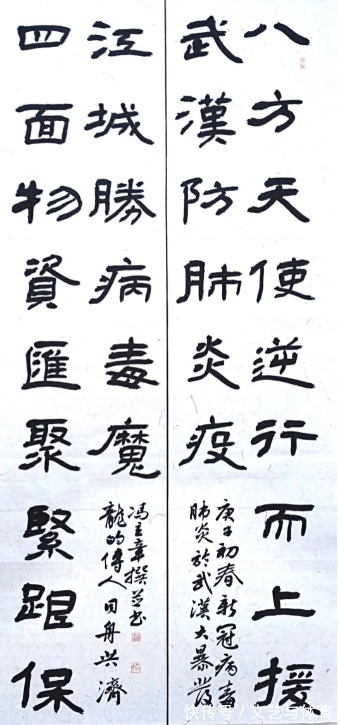 八方天使逆行而上援
武漢防肺炎疫
庚子初春新冠病毒
肺炎於武漢大暴發
四面物資匯聚緊跟保
江城勝病毒魔
龍的傳人同舟共濟
馮立章撰并书
快传号/文艺与体育